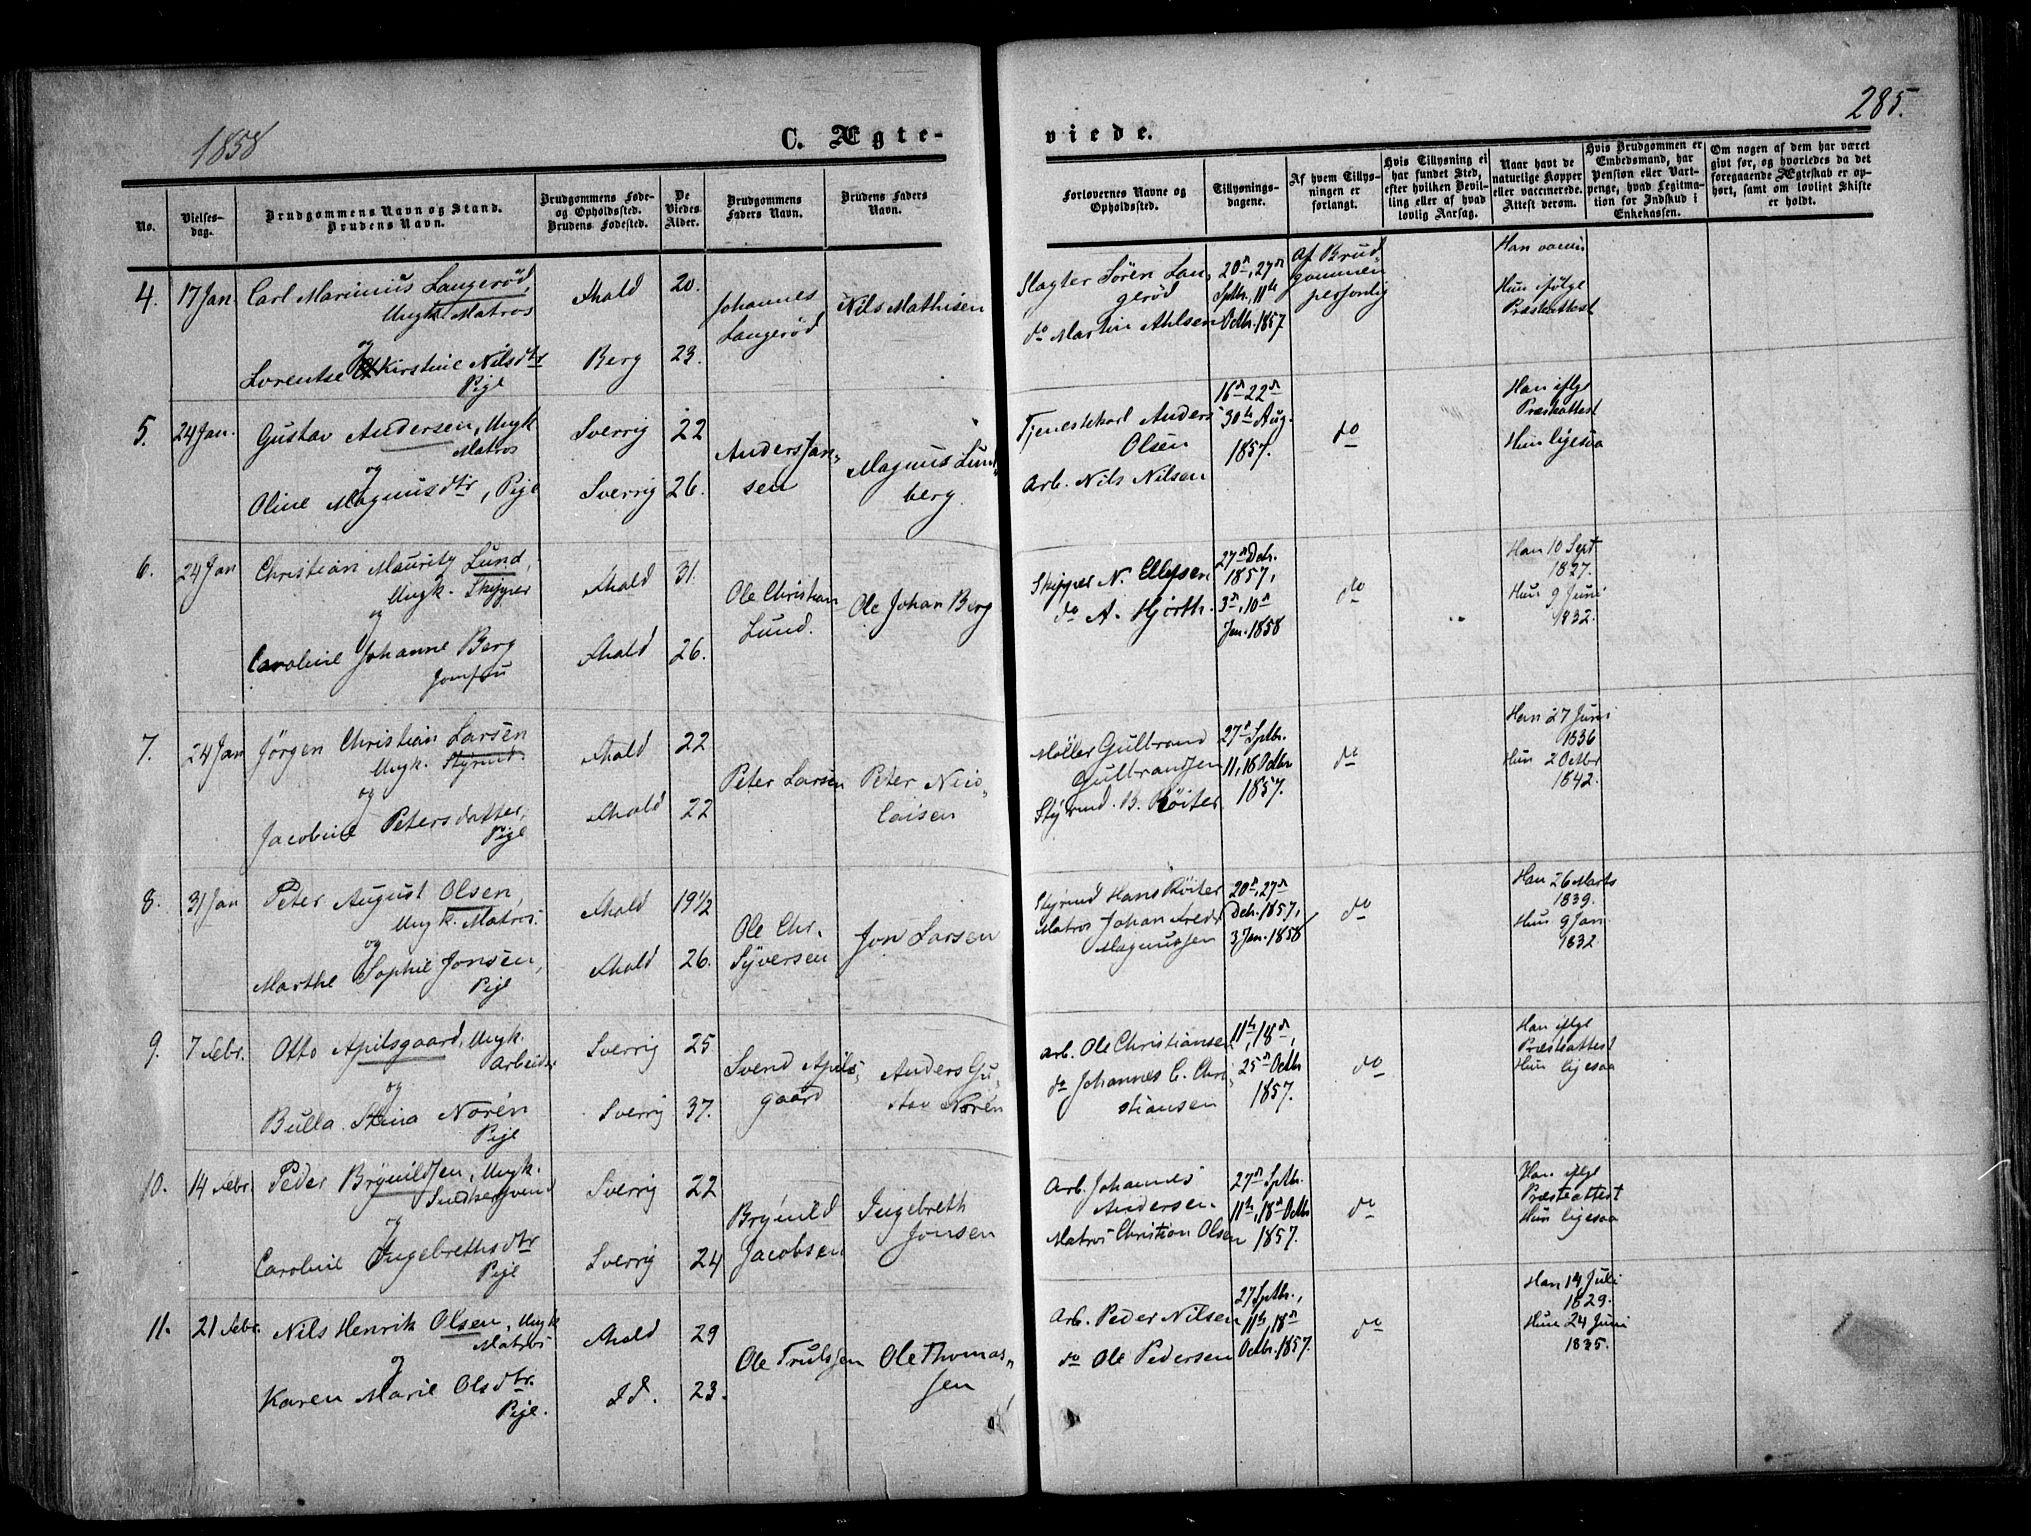 1858
C. Ægteviede.
285.
No.
Vielsesdag.
Brudgommens Navn og Stand.
Brudens Navn.
Brudgommens Føde-
og Opholdssted.
Brudens Fødested.
De
Viedes
Alder.
Brudgommens
Faders Navn.
Brudens Faders
Navn.
Forlovernes Navne og
Opholdssted.
Tillysnings-
dagene.
Af hvem Tillys-
ningen er
forlangt.
Hvis Tillysning ei
har fundet Sted,
efter hvilken Bevil-
ling eller af hvad
lovlig Aarsag.
Naar havt de
naturlige Kopper
eller vaccinerede.
Attest derom.
Hvis Brudgommen er
Embedsmand, har
Pension eller Vart-
penge, hvad Legitima-
tion for Indskud i
Enkekassen.
Om nogen af dem har været
givt før, og hvorledes da det
foregaaende Ægteskab er op-
hørt, samt om lovligt Skifte
er holdt.
4. 17 Jan
Carl Marinius Langerød,
Ungk. Matros
og
Lorentse Kirstine Nilsdtr
Pige
Fhald 20.
Berg 23.
Johannes
Langerød
Nils Mathisen
Slagter Sören Lan-
gerød
do Martin Ahlsen
20de, 27de
Septbr, 11te
Octbr. 1857
Af Brud-
gommen
personlig
Han vaccin
Hun ifølge
Præsteattest
5. 24 Jan.
Gustav Andersen, Ungk
Matros
og
Oline Magnusdtr, Pige
Sverrig 22
Sverrig 26.
Anders Jan-
sen
Magnus Lund-
berg.
Tjenestekarl Anders
Olsen
Arb. Nils Nilsen
16de 22de
30te Aug.
1857.
do
Han iflge
Præsteattest
Hun ligesaa
6. 24 Jan
Christian Mauritz Lund,
Ungk. Skipper
og
Caroline Johanne Berg
Jomfru
Fhald 31.
Fhald 26.
Ole Christian
Lund.
Ole Johan Berg
Skipper N. Ellefsen
do A. Hjorth.
27de Decbr.
1857,
3de, 10de
Jan. 1858
do
Han 10 Sept
1827.
Hun 9 Juni
1832.
7. 24 Jan
Jørgen Christian Larsen
Ungk. Styrmd.
og
Jacobine Petersdatter,
Pige
Fhald 22
Fhald 22
Peter Larsen
Peter Nico-
laisen
Møller Gulbrand
Gulbrandsen
Styrmd. B. Röiter
27de Septbr.
11, 18 Octbr
1857.
do
Han 27 Juni
1836
Hun 2 Octbr
1842.
8. 31 Jan
Peter August Olsen,
Ungk. Matros.
og
Marthe Sophie Jonsen,
Pige
Fhald 19 1/2
Fhald 26.
Ole Chr.
Syversen
Jon Larsen
Styrmd Hans Röiter
Matros Johan Fredr
Magnussen
20de, 27de
Decbr. 1857,
3 Jan. 1858
do
Han 26 Marts
1839.
Hun 9 Jan.
1832.
9. 7 Febr.
Otto Apilsgaard, Ungk.
Arbeider
og
Bulla Stina Norén
Pige
Sverrig 25
Sverrig 37.
Svend Apils-
gaard
Anders Gu-
stav Norén
Arb. Ole Christiansen
do Johannes C. Chri-
stiansen
11te, 18de,
25de Octbr
1857.
do
Han iflge
Præsteattest
Hun ligesaa
10. 14 Febr.
Peder Brynildsen, Ungk.
Snedkersvend
og
Caroline Ingebrethsdtr
Pige
Sverrig 22
Sverrig 24
Brynild
Jacobsen
Ingebreth
Jonsen
Arb. Johannes
Andersen.
Matros Christian Olsen
27de Septbr.
11te, 18de Octbr
1857.
do
Han iflge
Præsteattest
Hun ligesaa
11. 21 Febr.
Nils Henrik Olsen, Ungk
Matros
og
Karen Marie Olsdtr.
Pige.
Fhald 29
Id. 23.
Ole Trulssen
Ole Thomas-
sen
Arb. Peder Nilsen
do Ole Pedersen
27 Septbr.,
11te, 18de
Octbr. 1857.
do
Han 14 Juli
1829.
Hun 24 Juni
1835.